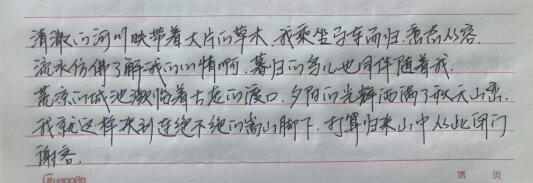 清澈的河川映带着大片的草木,我乘坐马车而归,意态从容.
流水仿佛了解我的心情啊,暮归的鸟儿也同伴随着我.
荒凉的城池濒临着古老的渡口,夕阳的光辉洒满了秋天山峦.
我就这样来到连绵不绝的嵩山脚下,打算归来山中从此闭门
谢客.
Guangbo
第 页